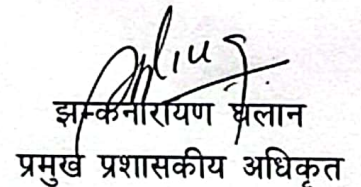 झम्कनारायण घलान
प्रमुख प्रशासकीय अधिकृत